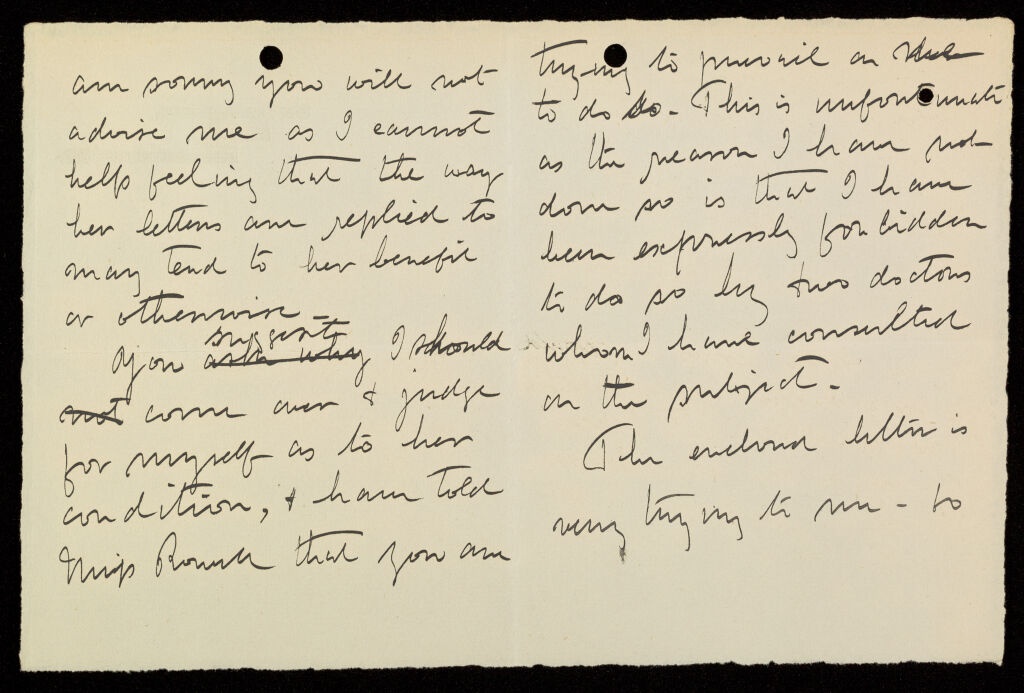 am sorry you will not
advise me as I cannot
help feeling that the way
her letters are replied to
may tend to her benefit
or otherwise –
You ask why suggest I should
not come over & judge
for myself as to her
condition, & have told
Miss that you are
trying to prevail on
to do so – This is unfortunate
as the reason I have not
done so is that I have
been expressly forbidden
to do so by two doctors
whom I have consulted
on the subject –
The enclosed letter is
very trying to me – so